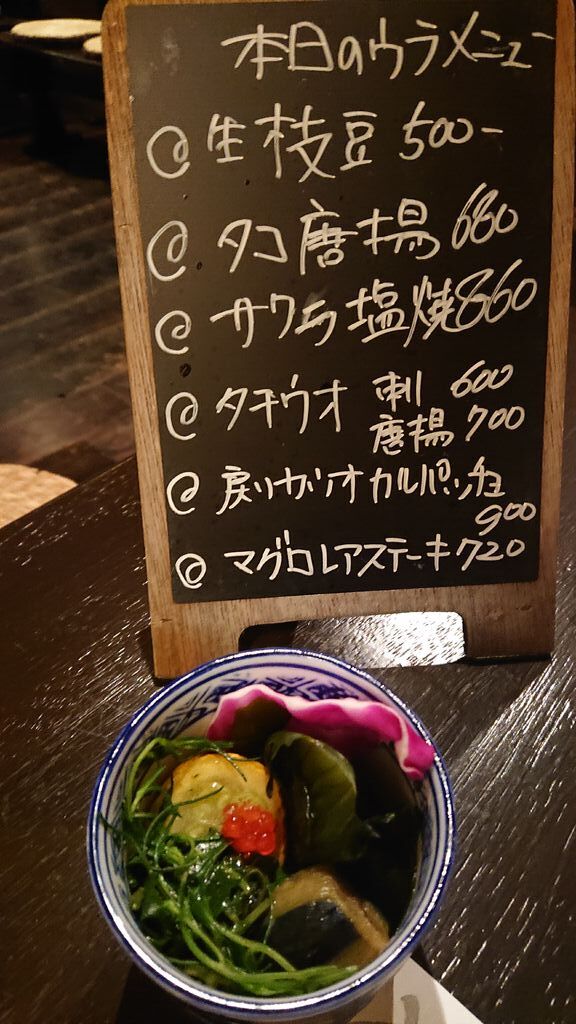 本日のウラメニュー
@ 生枝豆 500-
@ タコ唐揚 680
@ サワラ塩焼 860
@ タチウオ 刺 600
唐揚 700
@ 戻りガツオカルパッチョ
900
@ マグロレアステーキ 720